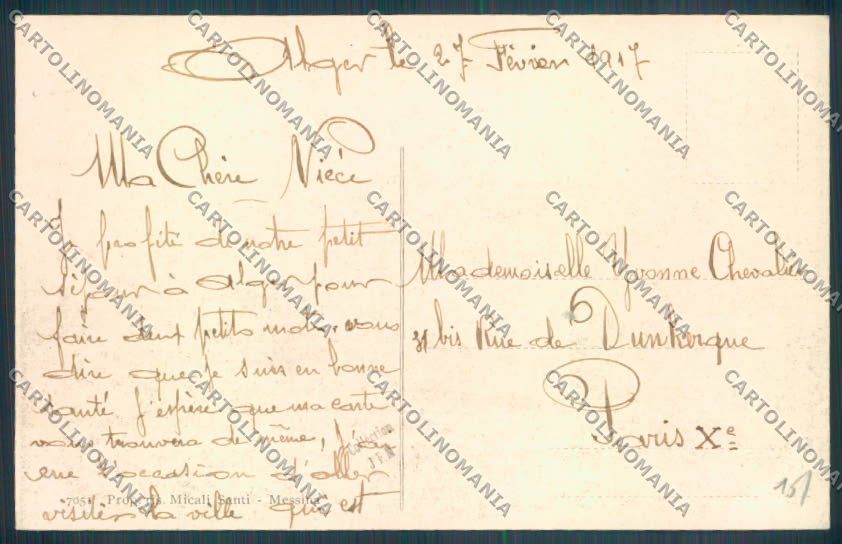 Alger le 27 Février 1917
Ma Chère Nièce
Je profite de notre petit
séjour à Alger pour
faire deux petits mots, vous
dire que je suis en bonne
santé j'espère que ma carte
vous trouvera de même, j'ai
une occasion d'aller
visiter la ville qui est
Mademoiselle Yvonne Chevalier
31 bis Rue de Dunkerque
Paris Xe
7051 Prop. ris. Micali Santi - Messina
157
CARTOLINOMANIA